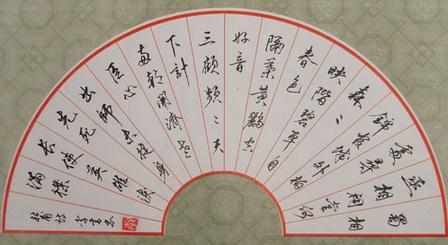 蜀相
丞相祠堂何
處尋
錦官城外柏
森〻
映階碧草自
春色
隔葉黃鸝空
好音
三顧頻〻天
下計
兩朝開濟老
臣心
出師未捷身
先死
長使英雄淚
滿襟
杜甫詩